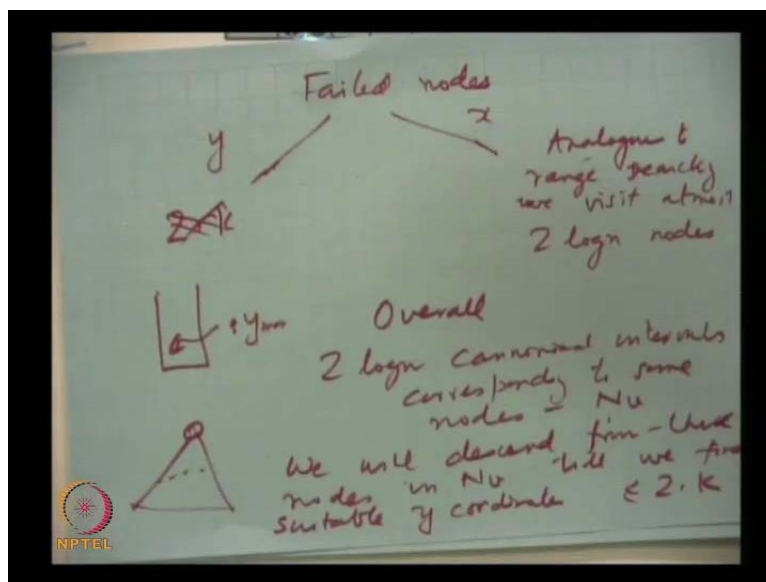 Failed nodes
y
x
Analogous to
range searching
we visit atmost
2 logn nodes
2 k
ymax
Overall
2 logn cannonical intervals
corresponding to some
nodes = Nu
We will descend from these
nodes in Nu till we find
suitable y cordinates ≤ 2.K
NPTEL